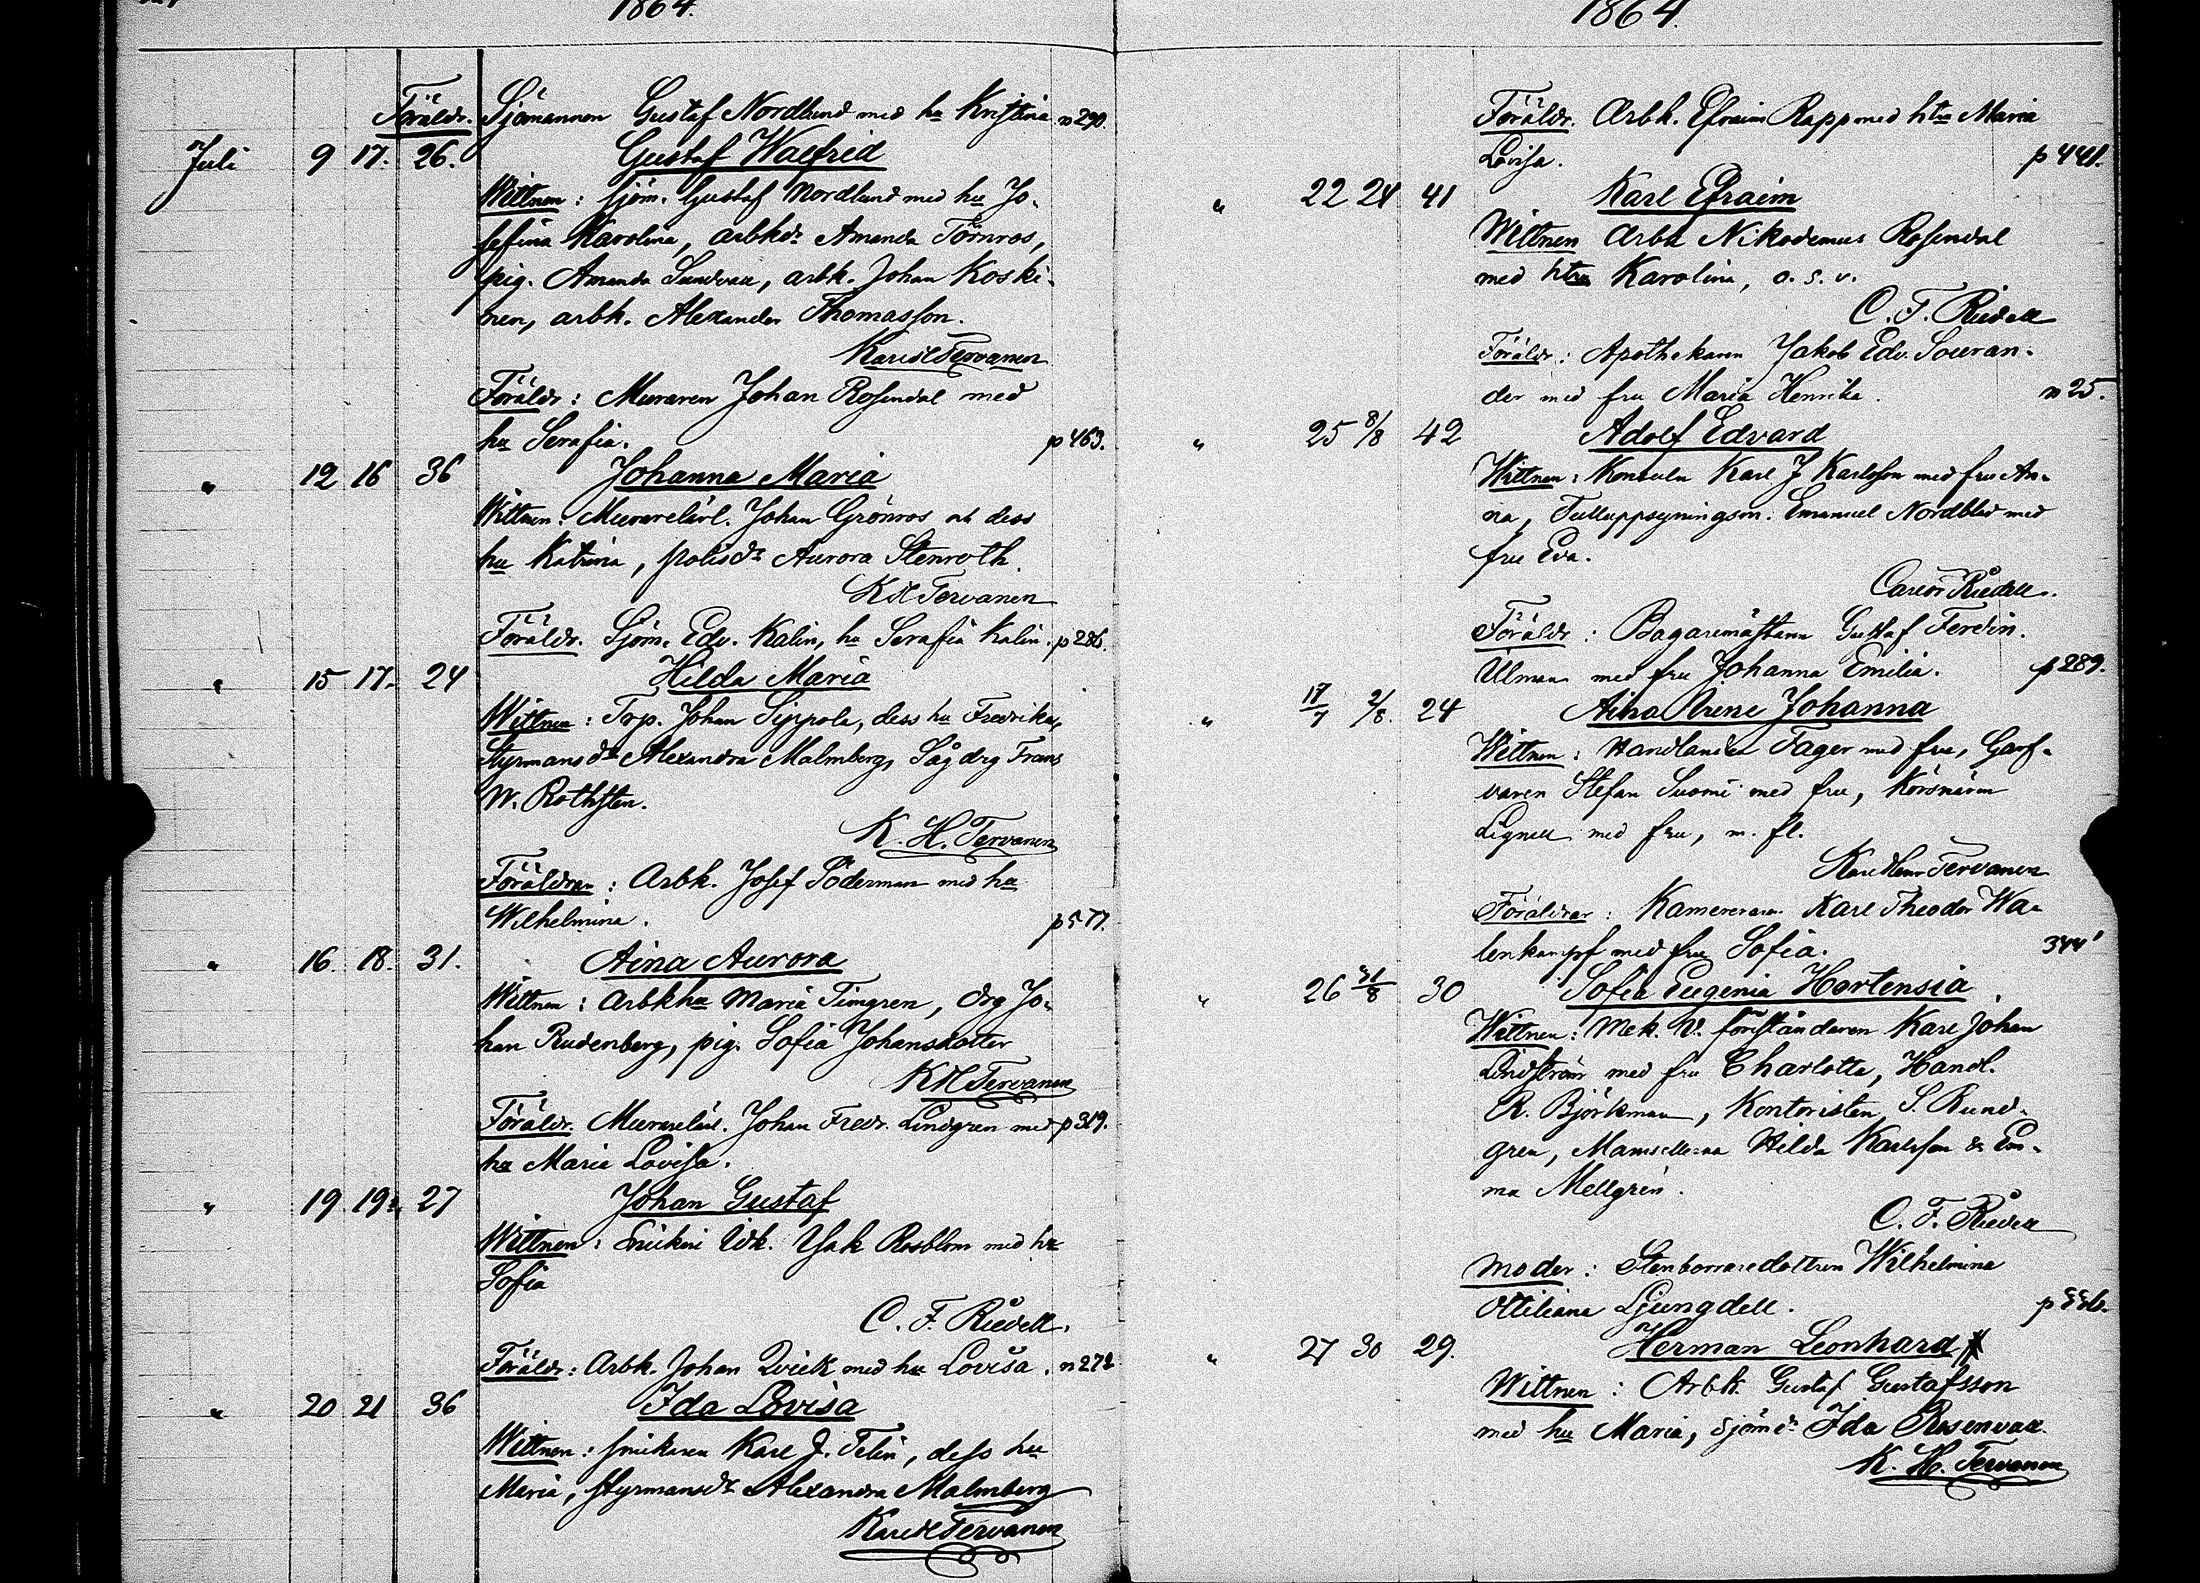 1864.
Föräldr. Sjömannen Gustaf Nordlund med hu Kristina n 290.
Juli 9 17. 26. Gustaf Walfrid
Wittnen: sjöm. Gustaf Nordlund med hu Jo-
sefina Karolina, arbkdr Amanda Törnros,
pig. Amanda Sundvall, arbk. Johan Koski-
nen, arbk. Alexander Thomasson.
Karl H Tervanen
Föräldr: Muraren Johan Rosendal med
hu Serafia. p 463.
" 12 16 36 Johanna Maria
Wittnen: Murarelärl. Johan Grönros och dess
hu Katrina, polisdr Aurora Stenroth.
K H Tervanen
Föräldr. Sjöm. Edv. Kalin, hu Serafia Kalin. p 286.
" 15 17. 24 Hilda Maria
Wittnen: Torp. Johan Sippola, dess hu Fredrika,
Styrmansdr Alexandra Malmberg, Sågdrg Frans
W. Rothsten.
K. H. Tervanen
Föräldrar: Arbk. Josef Söderman med hu
Wilhelmina. p 577.
" 16. 18. 31. Aina Aurora
Wittnen: Arbkhu Maria Timgren, drg Jo-
han Rudenberg, pig. Sofia Johansdotter
K H Tervanen
Föräldr. Murarelärl. Johan Fredr. Lindgren med p 319.
hu Maria Lovisa.
" 19. 19. 27 Johan Gustaf
Wittnen: Snickeri Isak Rosblom med hu
Sofia
C. F. Riedell.
Föräldr: Arbk. Johan Qvick med hu Lovisa. n 272
" 20 21 36 Ida Lovisa
Wittnen: snickaren Karl J. Felin, dess hu
Maria, styrmansdr Alexandra Malmberg
Karl H Tervanen
1864.
Föräldr. Arbk. Efraim Rapp med htru Maria
Lovisa. p 441.
" 22 24 41 Karl Efraim
Wittnen Arbk Nikodemus Rosendal
med htru Karolina, o. s. v.
C. F. Riedell
Föräldr: Apothekaren Jakob Edv. Souran-
der med fru Maria Henrika. n 25.
" 25 8/8 42 Adolf Edvard
Wittnen: Konsuln Karl J Karlsson med fru An-
na, Tulluppsyningsm. Emanuel Nordblad med
fru Eva.
Riedell.
Föräldr: Bagaremästaren Gustaf Ferdin.
Ulman med fru Johanna Emilia. p 289.
" 17/7 2/8. 24 Aina Irene Johanna
Wittnen: Handlanden Fager med fru, Garf-
varen Stefan Suomi med fru, Körsnären
Lignell med fru, m. fl.
Karl Henr Tervanen
Föräldrar: Kamereraren Karl Theodor Wa-
lenkampf med fru Sofia. 344
" 26 21/8 30 Sofia Eugenia Hortensia
Wittnen: Mek. W. föreståndaren Karl Johan
Lindström med fru Charlotta, Handl.
R. Björkman, Kontoristen S. Rund-
gren, Mamsellerna Hilda Karlsson & Em-
ma Mellgren.
C. F. Riedell
Moder: Stenborraredottren Wilhelmina
Ottiliana Ljungdell. p 556.
" 27 30 29. Herman Leonhard
Wittnen: Arbk. Gustaf Gustafsson
med hu Maria, sjömdr Ida Rosenvall.
K. H. Tervanen